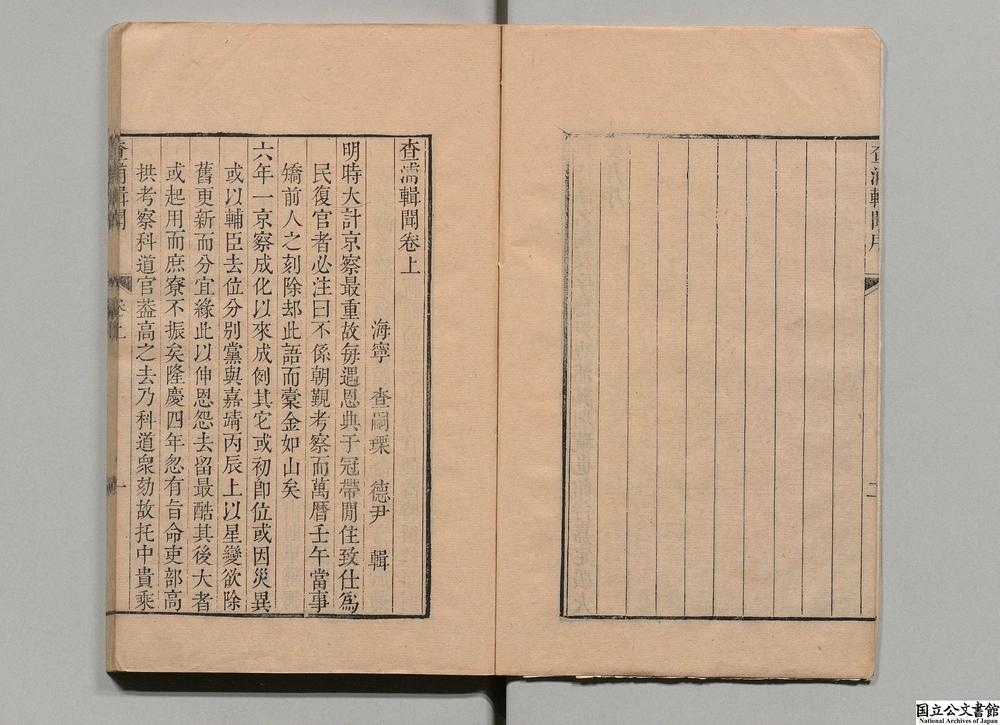 查浦輯聞序
二
查浦輯聞卷上
海寧　查嗣瑮　德尹　輯
明時大計京察最重故每遇恩典于冠帶閒住致仕為
民復官者必注曰不係朝覲考察而萬曆壬午當事
矯前人之刻除却此語而橐金如山矣
六年一京察成化以來成例其它或初卽位或因災異
或以輔臣去位分別黨與嘉靖丙辰上以星變欲除
舊更新而分宜緣此以伸恩怨去留最酷其後大者
或起用而庶寮不振矣隆慶四年忽有旨命吏部高
拱考察科道官葢高之去乃科道衆劾故托中貴乘
查浦輯聞
卷上
一
国立公文書館
National Archives of Japan